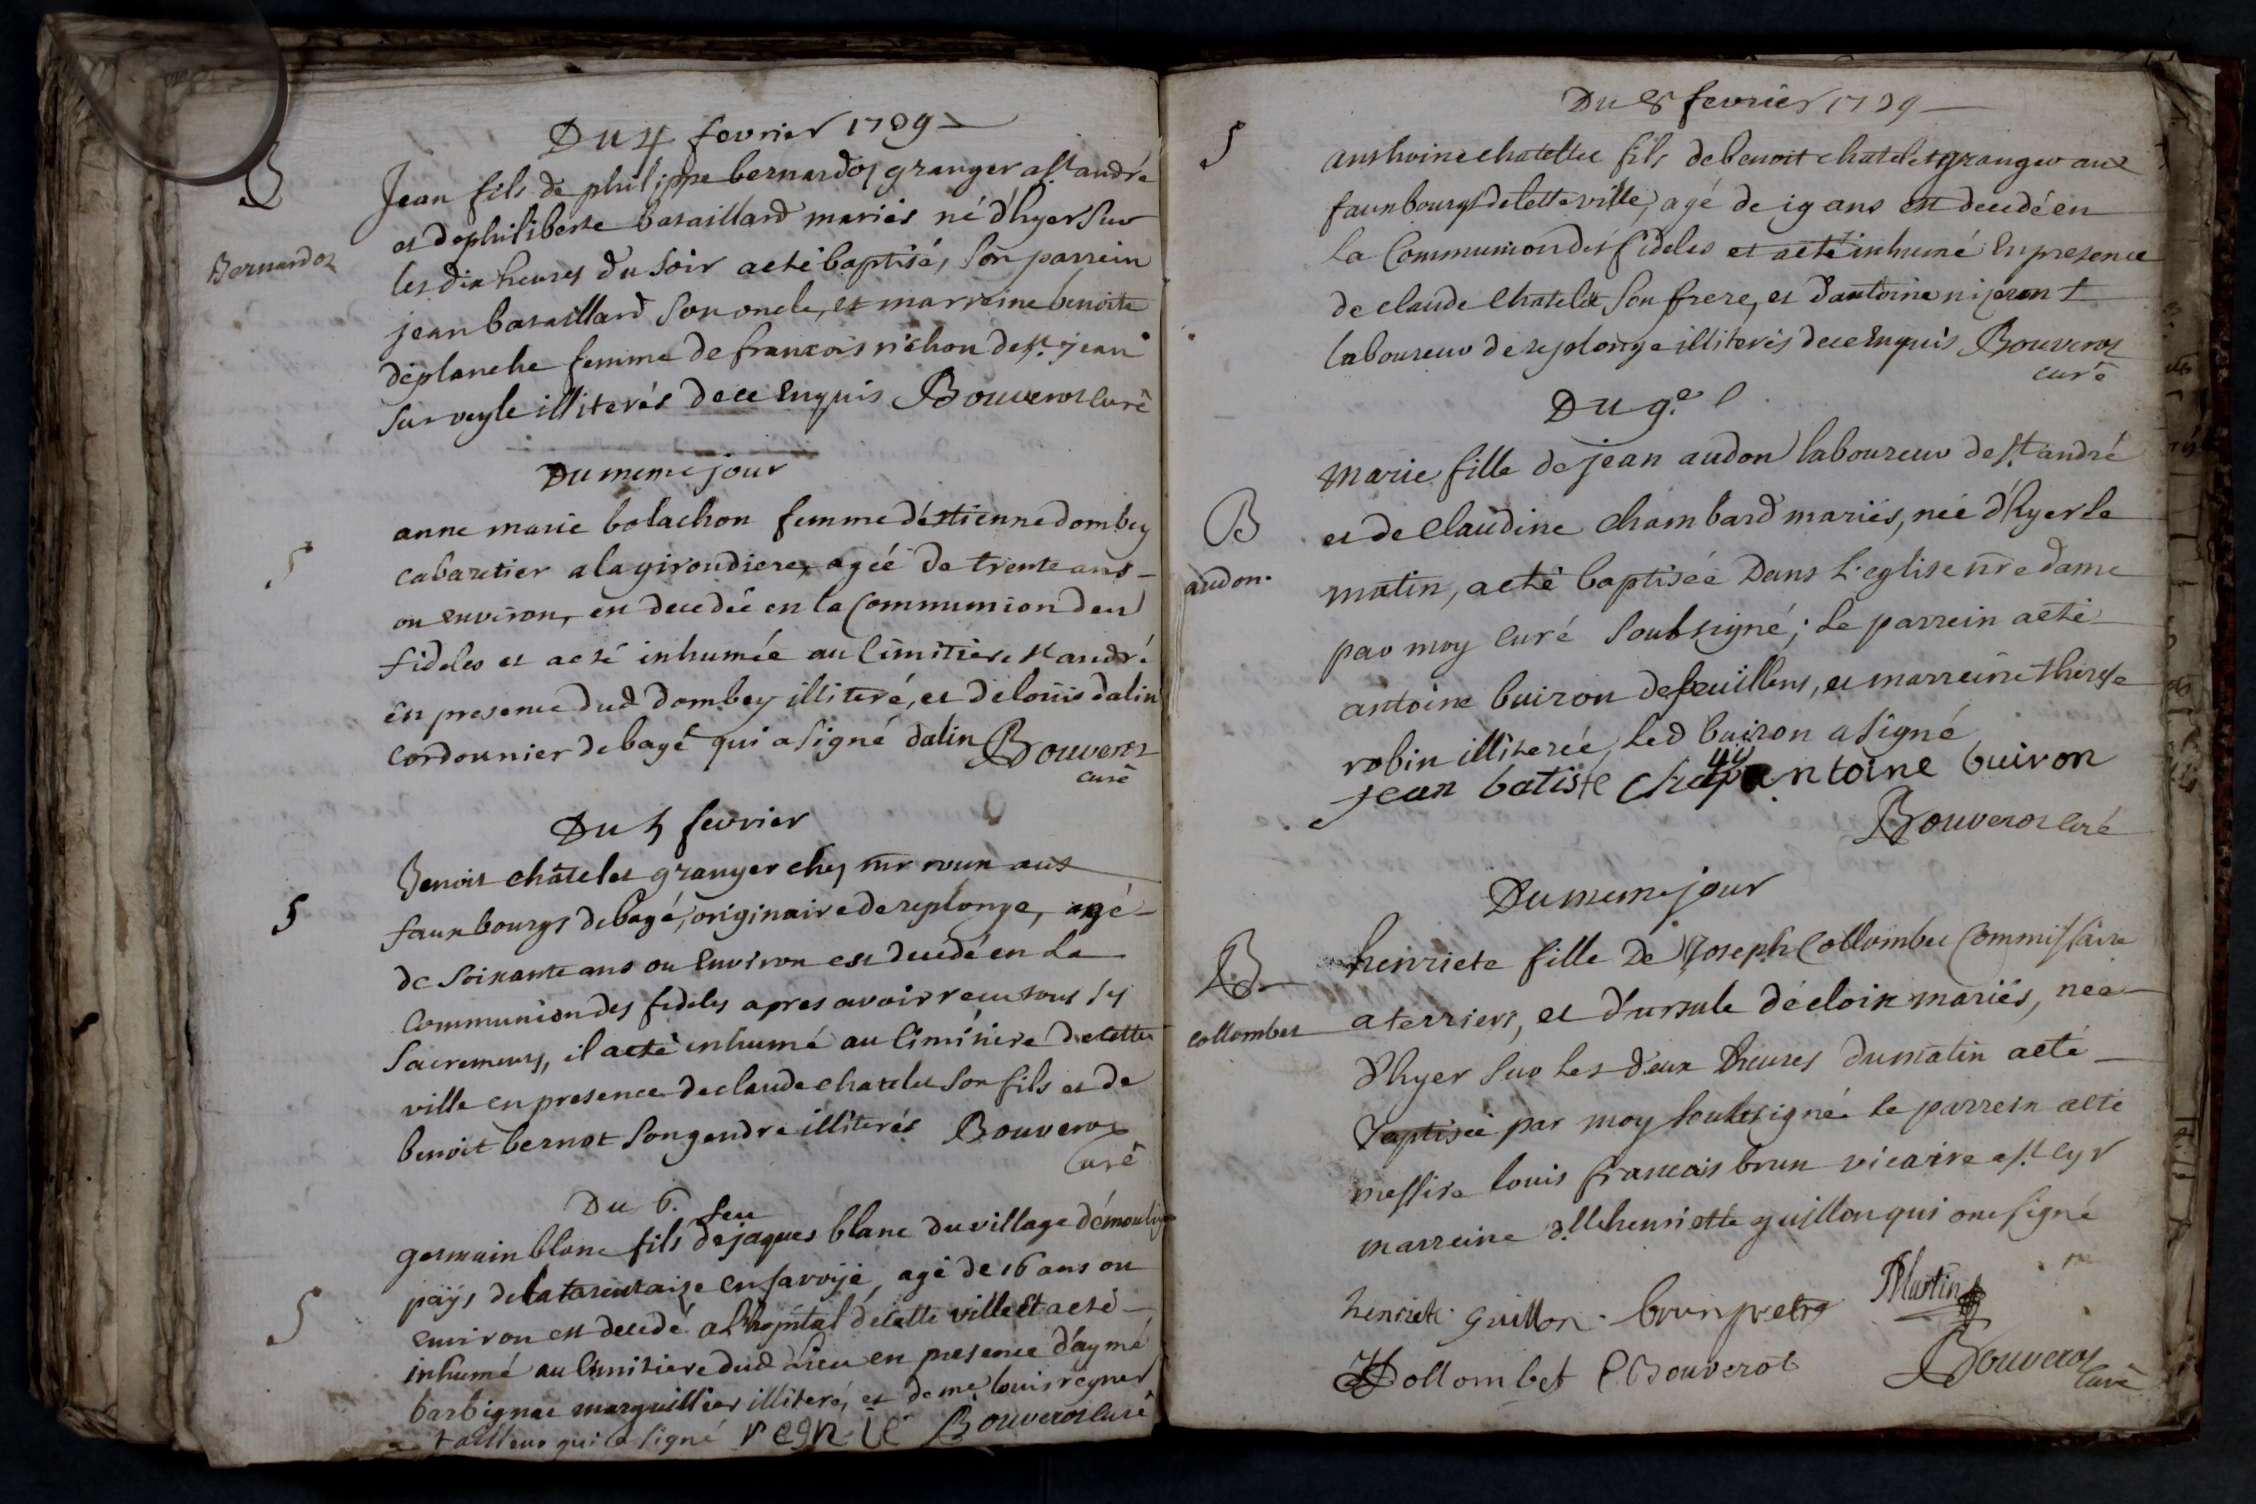 Du 4 fevrier 1739
B
Jean fils de philippe bernardot granger a st andré
et de philiberte bataillard mariés né d'hyer sur
Bernardot
les dix heures du soir a eté baptisé, son parrein
jean bataillard son oncle, et marreine benoite
déplanche femme de francois nichon de st. jean
sur veyle illiterés de ce enquis Bouverot curé
Du meme jour
anne marie bolachon femme d'estienne dombey
S
cabaretier a la girondiere, agéé de trente ans
ou environ, est decedée en la Communion des
fideles et a eté inhumée au Cimitiere st andré
en presence dud dombey illiteré, et de loüis dalin
cordonnier de bagé qui a signé dalin Bouverot
curé
Du 5 fevrier
Benoit châtelet granger chez mr brun aux
S
fauxbourgs de bagé, originaire de replonge, agé
de soixante ans ou environ est decedé en La
Communion des fideles apres avoir recu tous ses
sacremens, il a eté inhumé au Cimitiere de cette
ville en presence de claude chatelet son fils et de
benoit bernot son gendre illiterés Bouverot
Curé
Du 6.
feu
germain blanc fils de jaques blanc du village de
païs de la tarentaise en savoÿe, agé de 16 ans ou
S
environ est decedé a l'hopital de cette ville et a eté
inhumé au Cimitiere dud lieu en presence d'aymé
barbignat marguillier illiteré, et de me louis regner
tailleur qui a signé Bouverot curé
Du 8 fevrier 1739
S
anthoine chatellet fils de benoit chatelet granger aux
fauxbourgs de cette ville, agé de 19 ans est decedé en
La Communion des fideles et a eté inhumé en presence
de claude chatelet son frere, et d'antoine nizeront
laboureur de replonge illiterés de ce enquis Bouverot
curé
Du 9.e
marie fille de jean audon laboureur de st. andré
B
et de Claudine Chambard mariés, née d'hyer le
audon.
matin, a eté baptiséé Dans L'eglise nre dame
par moy Curé Soubsigné; Le parrein a eté
antoine buiron de feuillens, et marreine therese
robin illiterée, led buiron a signé
jean batiste antoine buiron
Bouverot curé
Du meme jour
B
henriete fille De Joseph Collombet Commissaire
collombet
a terriers, et d'ursule décloix mariés, née
d'hyer sur les deux heures du matin a eté
baptisée par moy soubsigné le parrein a eté
messire louis francois brun vicaire a st. Cyr
marreine d.lle henriette guillon qui ont signé
henriete guillon. brun pretre Martin
Collombet C Bouverot Bouverot
Curé